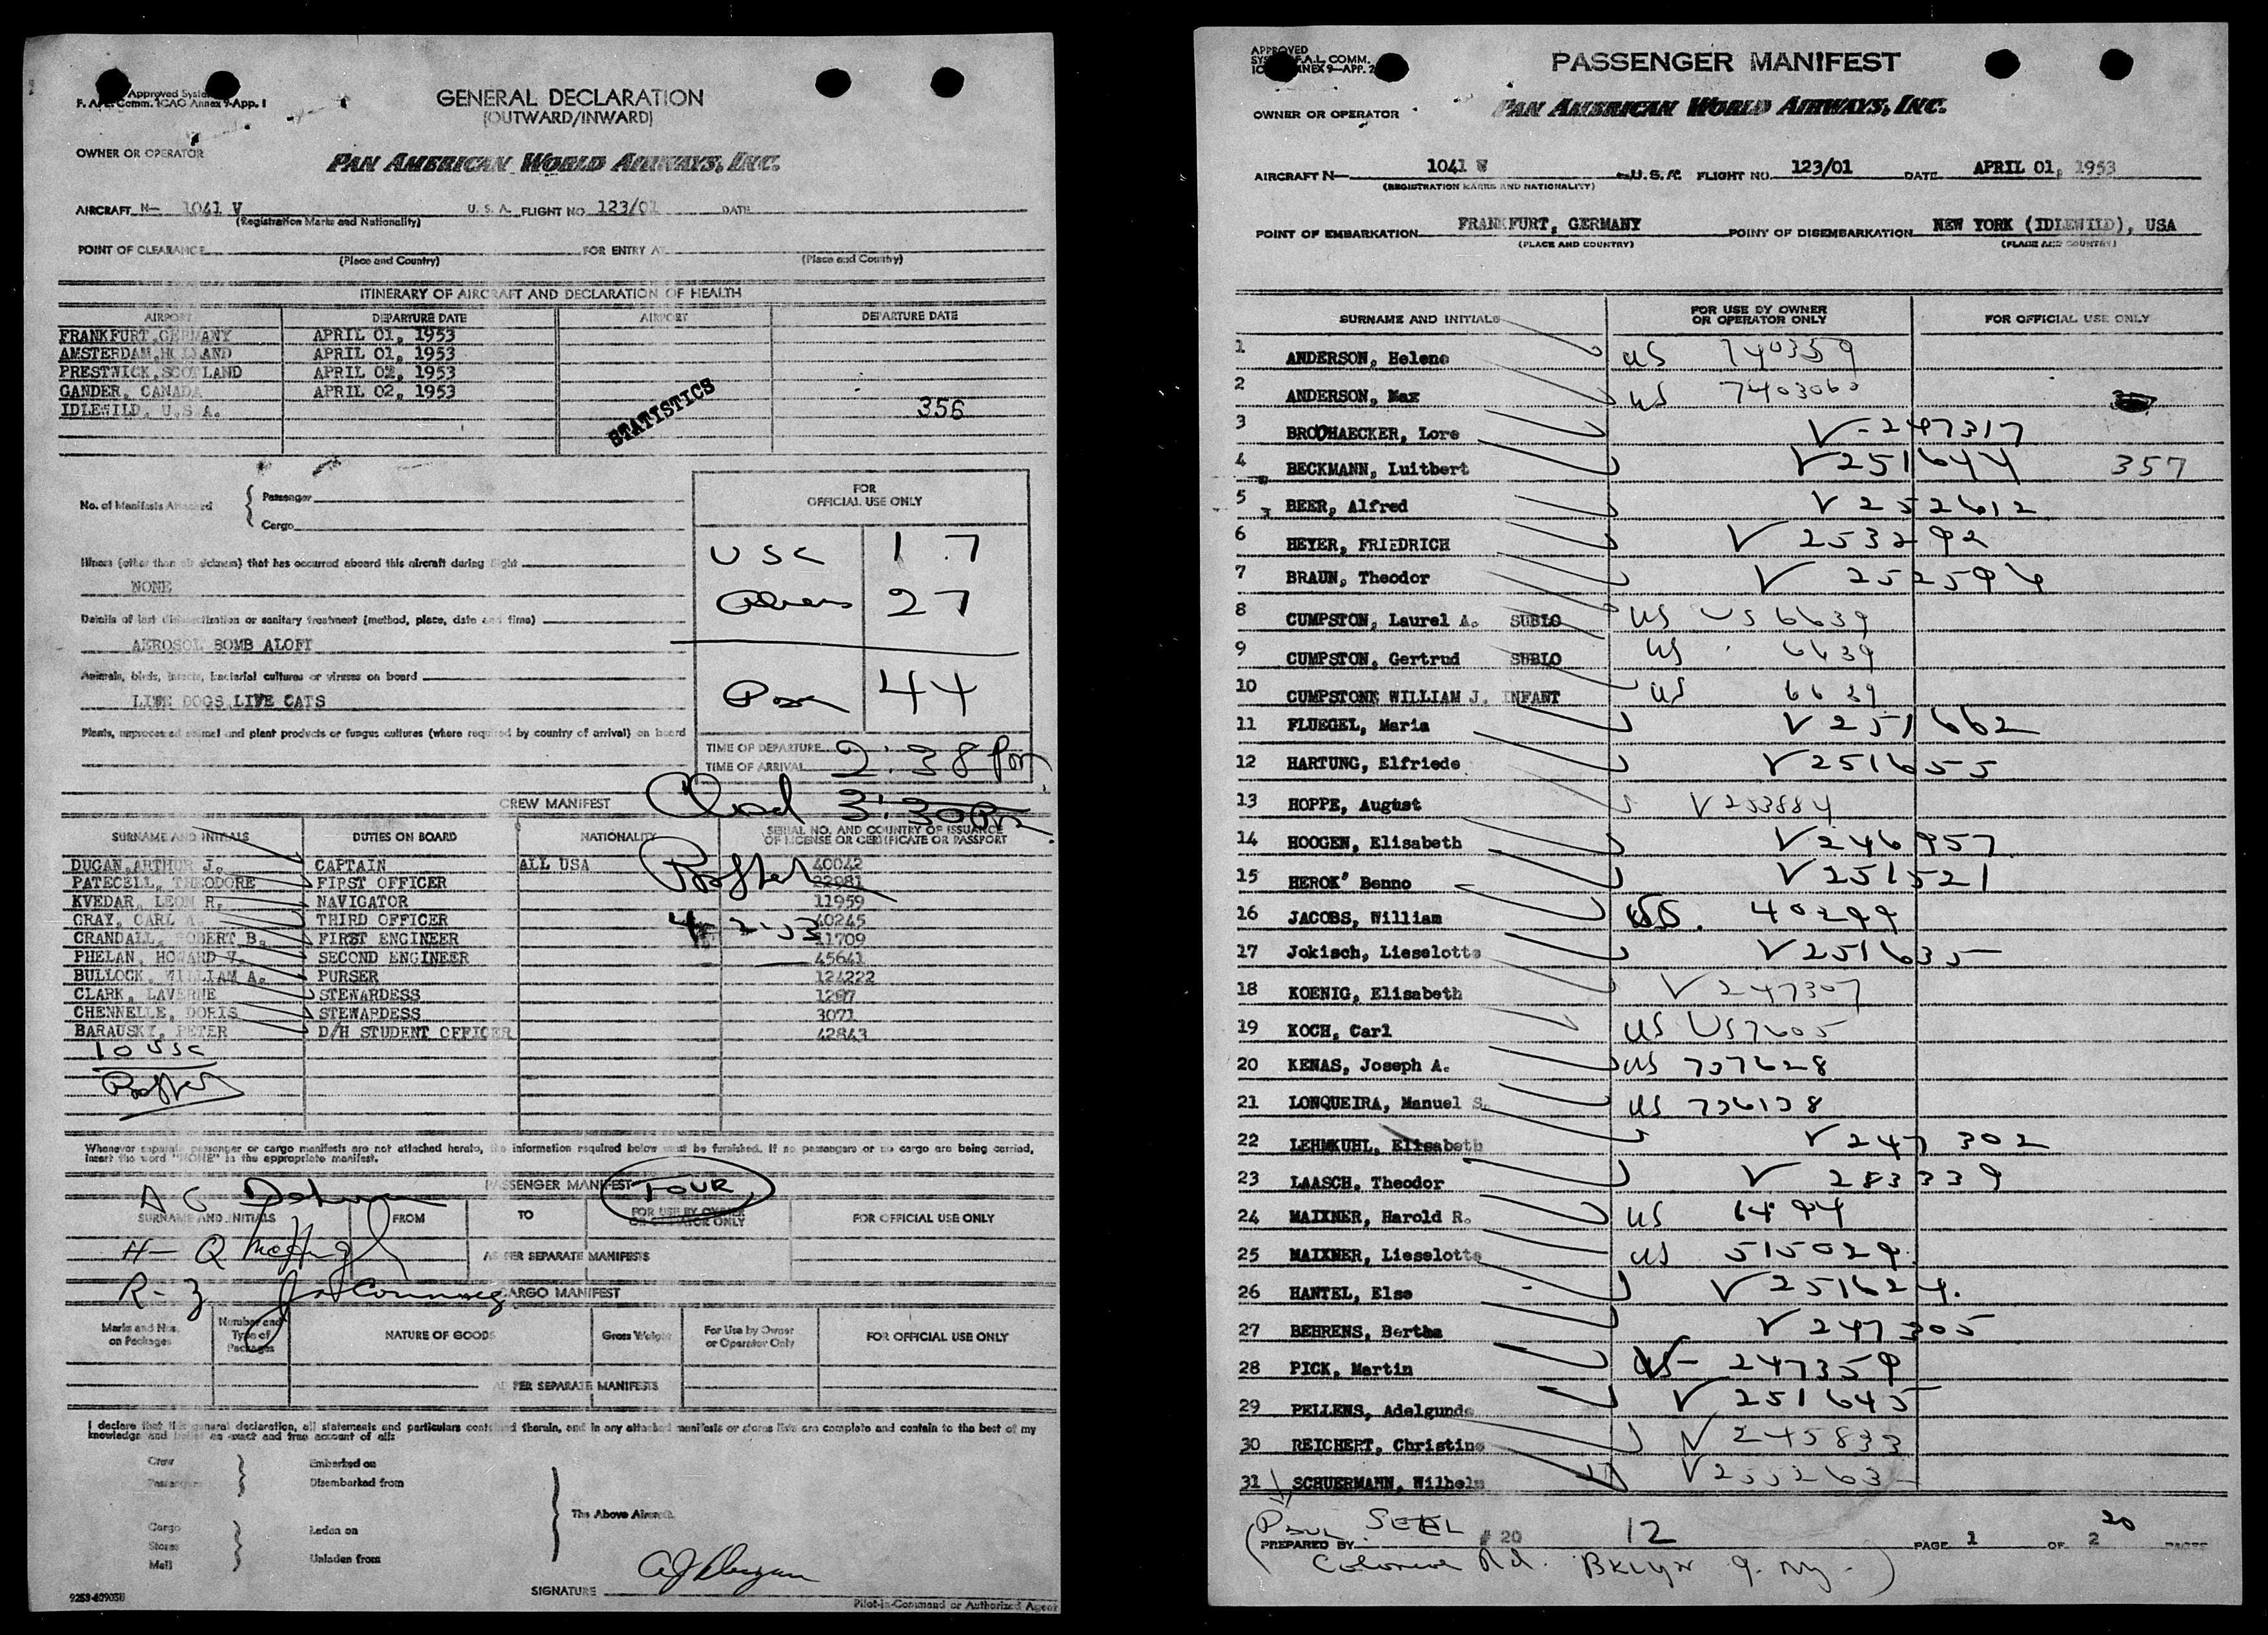 Approved System
F. A. L. Comm. ICAO Annex 9-App. 1
GENERAL DECLARATION
(OUTWARD/INWARD)
OWNER OR OPERATOR
PAN AMERICAN WORLD AIRWAYS, INC.
AIRCRAFT N- 1041 V U. S. A. FLIGHT NO 123/01 DATE
(Registration Marks and Nationality)
POINT OF CLEARANCE FOR ENTRY AT
(Place and Country) (Place and Country)
ITINERARY OF AIRCRAFT AND DECLARATION OF HEALTH
AIRPORT DEPARTURE DATE AIRPORT DEPARTURE DATE
FRANKFURT, GERMANY APRIL 01, 1953
AMSTERDAM, HOLLAND APRIL 01, 1953
PRESTWICK, SCOTLAND APRIL 02, 1953
GANDER, CANADA APRIL 02, 1953
IDLEWILD, U.S.A. 356
STATISTICS
No. of Manifests Attached
Passenger
Cargo
FOR
OFFICIAL USE ONLY
USC 17
Aliens 27
44
Illness (other than air sickness) that has occurred aboard this aircraft during flight
NONE
Details of last disinsectization or sanitary treatment (method, place, date and time)
AEROSOL BOMB ALOFT
Animals, birds, insects, bacterial cultures or viruses on board
LIVE DOGS LIVE CATS
Plants, unprocessed animal and plant products or fungus cultures (where required by country of arrival) on board
TIME OF DEPARTURE
TIME OF ARRIVAL 2:38 Pm
3:30 Pm
CREW MANIFEST
SURNAME AND INITIALS DUTIES ON BOARD NATIONALITY SERIAL NO. AND COUNTRY OF ISSUANCE
OF LICENSE OR CERTIFICATE OR PASSPORT
DUGAN, ARTHUR J. CAPTAIN ALL USA 40042
PATECELL, THEODORE FIRST OFFICER 22981
KVEDAR, LEON R. NAVIGATOR 11959
GRAY, CARL A. THIRD OFFICER 40245
CRANDALL, ROBERT B. FIRST ENGINEER 11709
PHELAN, HOWARD V. SECOND ENGINEER 45641
BULLOCK, WILLIAM A. PURSER 124222
CLARK, LAVERNE STEWARDESS 1297
CHENNELLE, DORIS STEWARDESS 3071
BARAUSKY, PETER D/H STUDENT OFFICER 42843
4-2-53
10 USC
Whenever separate passenger or cargo manifests are not attached hereto, the information required below must be furnished. If no passengers or no cargo are being carried,
insert the word "NONE" in the appropriate manifest.
PASSENGER MANIFEST TOUR
SURNAME AND INITIALS FROM TO FOR USE BY OWNER
OR OPERATOR ONLY FOR OFFICIAL USE ONLY
AS PER SEPARATE MANIFESTS
CARGO MANIFEST
Marks and Nos.
on Packages Number and
Type of
Packages NATURE OF GOODS Gross Weight For Use by Owner
or Operator Only FOR OFFICIAL USE ONLY
AS PER SEPARATE MANIFESTS
I declare that this general declaration, all statements and particulars contained therein, and in any attached manifests or stores lists are complete and contain to the best of my
knowledge and belief an exact and true account of all:
Crew Embarked on
Passengers Disembarked from
The Above Aircraft
Cargo Laden on
Stores
Mail Unladen from
SIGNATURE
Pilot-in-Command or Authorized Agent
APPROVED
SYS F.A.L. COMM.
ICAO ANNEX 9-APP. 2
PASSENGER MANIFEST
OWNER OR OPERATOR PAN AMERICAN WORLD AIRWAYS, INC.
AIRCRAFT N- 1041 V U.S.A. FLIGHT NO. 123/01 DATE APRIL 01, 1953
(REGISTRATION MARKS AND NATIONALITY)
POINT OF EMBARKATION FRANKFURT, GERMANY POINT OF DISEMBARKATION NEW YORK (IDLEWILD), USA
(PLACE AND COUNTRY) (PLACE AND COUNTRY)
SURNAME AND INITIALS FOR USE BY OWNER
OR OPERATOR ONLY FOR OFFICIAL USE ONLY
1 ANDERSON, Helene US 740359
2 ANDERSON, Max US 7403060
3 BROOHAECKER, Lore V-247317
4 BECKMANN, Luitbert V 251644 357
5 BEER, Alfred V 252612
6 HEYER, FRIEDRICH V 253292
7 BRAUN, Theodor V 252594
8 CUMPSTON, Laurel A. SUBLO US US 6639
9 CUMPSTON, Gertrud SUBLO US 6639
10 CUMPSTONE WILLIAM J. INFANT US 6639
11 FLUEGEL, Maria V 251662
12 HARTUNG, Elfriede V 251655
13 HOPPE, August V 253884
14 HOOGEN, Elisabeth V 246957
15 HEROK' Benno V 251521
16 JACOBS, William US. 40299
17 Jokisch, Lieselotte V 251635
18 KOENIG, Elisabeth V 247307
19 KOCH, Carl US US7605
20 KENAS, Joseph A. US 737628
21 LONQUEIRA, Manuel S. US 736138
22 LEHMKUHL, Elisabeth V 247302
23 LAASCH, Theodor V 283339
24 MAIXNER, Harold R. US 6494
25 MAIXNER, Lieselotte US 515029
26 HANTEL, Else V 251624.
27 BEHRENS, Bertha V 247305
28 PICK, Martin 247359
29 PELLENS, Adelgunde V 251645
30 REICHERT, Christine V 245833
31 SCHUERMANN, Wilhelm
PREPARED BY # 20 12 PAGE 1 OF 2 PAGES